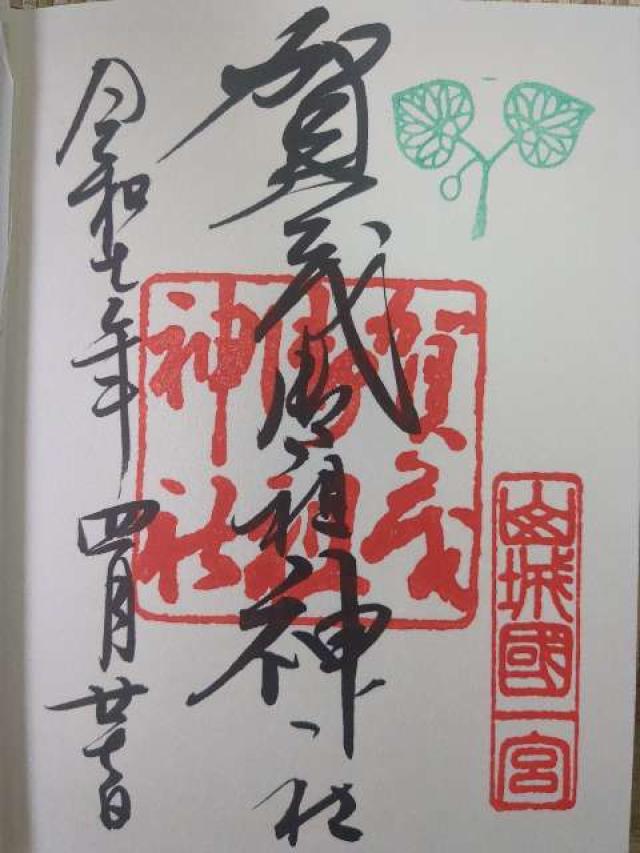 山城國一宮
賀茂御祖神社
賀茂
御祖
神社
令和七年四月廿七日